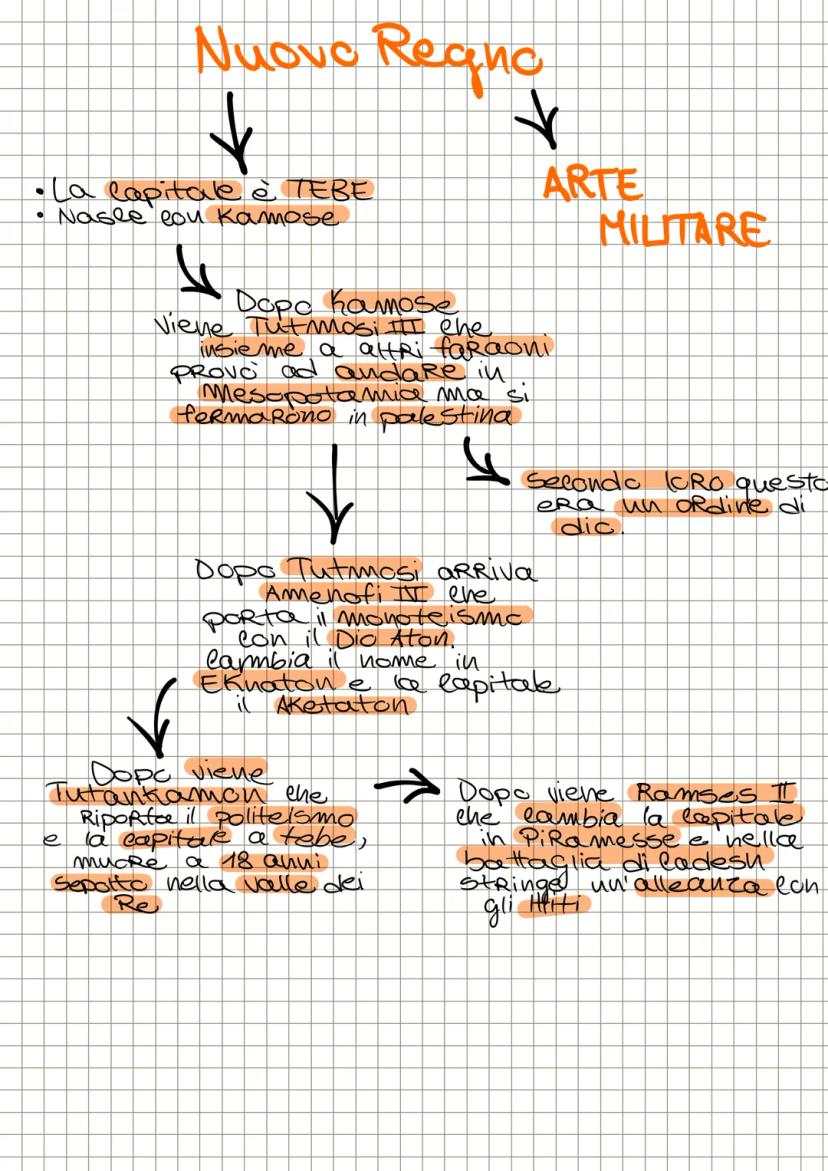 Nuovo Regno
• La capitale è TEBE
• Nasce con Kamose
ARTE
MILITARE
Dopo Kamose
viene Tutmosi III che
insieme a altri faraoni
provò ad andare in
Mesopotamia ma si
fermarono in palestina
secondo loro questo
era un ordine di
dio.
Dopo Tutmosi arriva
Amenofi IV che
porta il monoteismo
con il Dio Aton.
Cambia il nome in
EKnaton e la capitale
il AKetaton
Dopo viene
Tutankamon che
riporta il politeismo
e la capitale a tebe,
muore a 18 anni
sepolto nella valle dei
Re
Dopo viene Ramses II
che cambia la capitale
in PiRamesse e nella
battaglia di Cadesh
stringe un'alleanza con
gli Ittiti